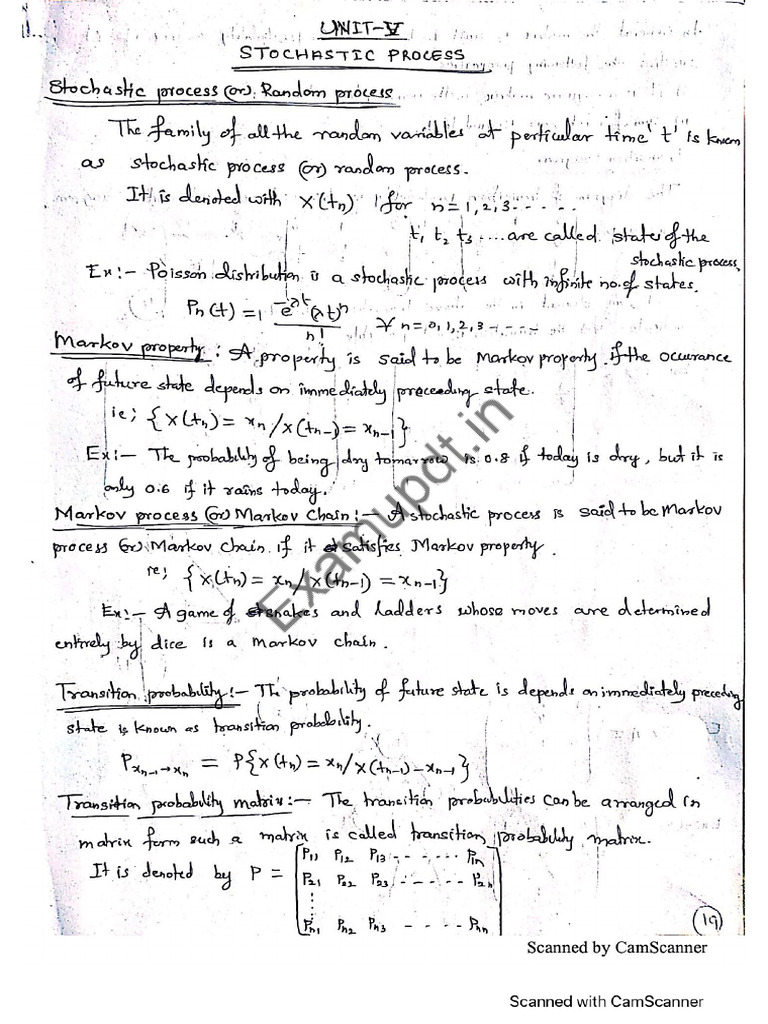 UNIT-V
STOCHASTIC PROCESS
Stochastic process (or) Random process
The family of all the random variables at perticular time 't' is known
as stochastic process (or) random process.
It is denoted with X(tn) for n=1,2,3-----
t1 t2 t3 ....are called state of the
stochastic process.
Ex:- Poisson distribution is a stochastic process with infinite no.of states.
Pn(t) = e^-λt (λt)^n / n! ∀ n=0,1,2,3-----
Markov property: A property is said to be Markov property if the occurance
of future state depends on immediately preceeding state.
ie; {X(tn) = xn/X(tn-1) = xn-1}
Ex:- The probability of being dry tomarrow is 0.8 if today is dry, but it is
only 0.6 if it rains today.
Markov process (or) Markov chain:- A stochastic process is said to be Markov
process (or) Markov chain if it satisfies Markov property.
ie; {X(tn) = xn/X(tn-1) = xn-1}
Ex:- A game of snakes and ladders whose moves are determined
entirely by dice is a markov chain.
Transition probability:- The probability of future state is depends on immediately preceding
state is known as transition probability.
Pxn-1→xn = P{X(tn) = xn/X(tn-1)-xn-1}
Transition probability matrix:- The transition probabilities can be arranged in
matrix form such a matrix is called transition probability matrix.
It is denoted by P = [P11 P12 P13 ------ P1n
P21 P22 P23 ------ P2n
⋮
Pn1 Pn2 Pn3 ---- Pnn]
19
Examupdt.in
Scanned by CamScanner
Scanned with CamScanner